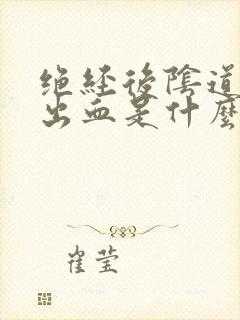 绝経後陰道
出血是什麼
崔莹